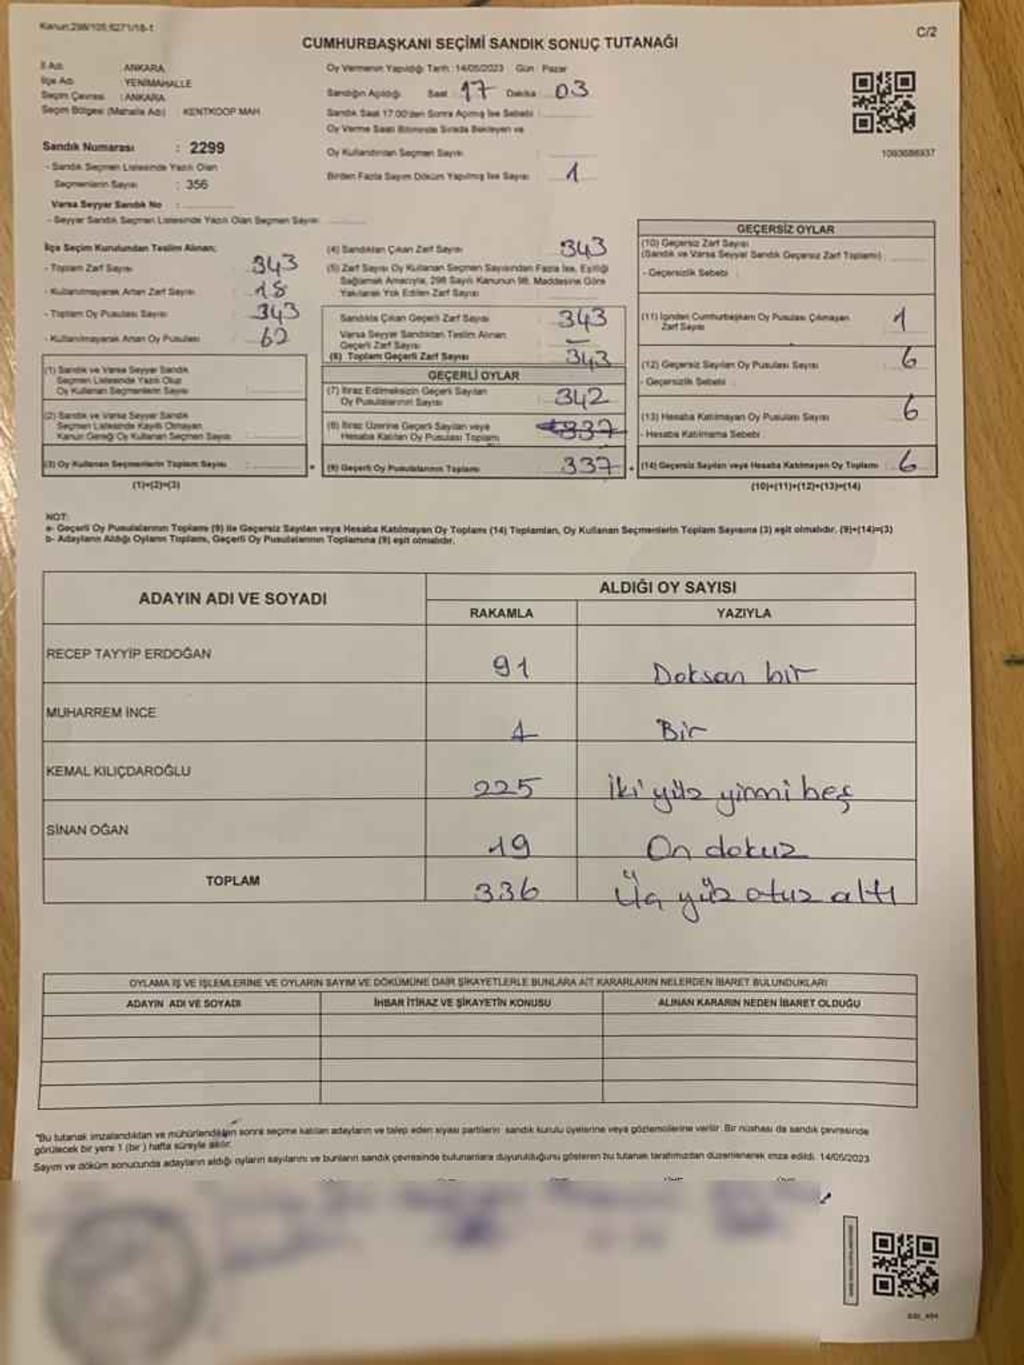 Kanun:298/105;6271/18-1
C/2
CUMHURBAŞKANI SEÇİMİ SANDIK SONUÇ TUTANAĞI
İl Adı : ANKARA
İlçe Adı : YENİMAHALLE
Seçim Çevresi : ANKARA
Seçim Bölgesi (Mahalle Adı) : KENTKOOP MAH
Sandık Numarası : 2299
- Sandık Seçmen Listesinde Yazılı Olan
Seçmenlerin Sayısı : 356
Varsa Seyyar Sandık No :
- Seyyar Sandık Seçmen Listesinde Yazılı Olan Seçmen Sayısı
Oy Vermenin Yapıldığı Tarih : 14/05/2023 Gün : Pazar
Sandığın Açıldığı Saat 17 Dakika 03
Sandık Saat 17.00'den Sonra Açılmış İse Sebebi :
Oy Verme Saati Bitiminde Sırada Bekleyen ve
Oy Kullandırılan Seçmen Sayısı
Birden Fazla Sayım Döküm Yapılmış İse Sayısı 1
1093686937
İlçe Seçim Kurulundan Teslim Alınan;
- Toplam Zarf Sayısı 343
- Kullanılmayarak Artan Zarf Sayısı 18
- Toplam Oy Pusulası Sayısı 343
- Kullanılmayarak Artan Oy Pusulası 62
(1) Sandık ve Varsa Seyyar Sandık
Seçmen Listesinde Yazılı Olup
Oy Kullanan Seçmenlerin Sayısı
(2) Sandık ve Varsa Seyyar Sandık
Seçmen Listesinde Kayıtlı Olmayan
Kanun Gereği Oy Kullanan Seçmen Sayısı
(3) Oy Kullanan Seçmenlerin Toplam Sayısı
(1)+(2)=(3)
(4) Sandıktan Çıkan Zarf Sayısı 343
(5) Zarf Sayısı Oy Kullanan Seçmen Sayısından Fazla İse, Eşitliği
Sağlamak Amacıyla, 298 Sayılı Kanunun 98. Maddesine Göre
Yakılarak Yok Edilen Zarf Sayısı
Sandıkta Çıkan Geçerli Zarf Sayısı 343
Varsa Seyyar Sandıktan Teslim Alınan
Geçerli Zarf Sayısı -
(6) Toplam Geçerli Zarf Sayısı 343
GEÇERLİ OYLAR
(7) İtiraz Edilmeksizin Geçerli Sayılan
Oy Pusulalarının Sayısı 342
(8) İtiraz Üzerine Geçerli Sayılan veya
Hesaba Katılan Oy Pusulası Toplamı 337
(9) Geçerli Oy Pusulalarının Toplamı 337
GEÇERSİZ OYLAR
(10) Geçersiz Zarf Sayısı
(Sandık ve Varsa Seyyar Sandık Geçersiz Zarf Toplamı)
- Geçersizlik Sebebi :
(11) İçinden Cumhurbaşkanı Oy Pusulası Çıkmayan
Zarf Sayısı 1
(12) Geçersiz Sayılan Oy Pusulası Sayısı 6
- Geçersizlik Sebebi :
(13) Hesaba Katılmayan Oy Pusulası Sayısı 6
- Hesaba Katılmama Sebebi :
(14) Geçersiz Sayılan veya Hesaba Katılmayan Oy Toplamı 6
(10)+(11)+(12)+(13)=(14)
NOT:
a- Geçerli Oy Pusulalarının Toplamı (9) ile Geçersiz Sayılan veya Hesaba Katılmayan Oy Toplamı (14) Toplamları, Oy Kullanan Seçmenlerin Toplam Sayısına (3) eşit olmalıdır. (9)+(14)=(3)
b- Adayların Aldığı Oyların Toplamı, Geçerli Oy Pusulalarının Toplamına (9) eşit olmalıdır.
ADAYIN ADI VE SOYADI
ALDIĞI OY SAYISI
RAKAMLA YAZIYLA
RECEP TAYYİP ERDOĞAN 91 Doksan bir
MUHARREM İNCE 1 Bir
KEMAL KILIÇDAROĞLU 225 İki yüz yirmi beş
SİNAN OĞAN 19 On dokuz
TOPLAM 336 Üç yüz otuz altı
OYLAMA İŞ VE İŞLEMLERİNE VE OYLARIN SAYIM VE DÖKÜMÜNE DAİR ŞİKAYETLERLE BUNLARA AİT KARARLARIN NELERDEN İBARET BULUNDUKLARI
ADAYIN ADI VE SOYADI İHBAR İTİRAZ VE ŞİKAYETİN KONUSU ALINAN KARARIN NEDEN İBARET OLDUĞU
"Bu tutanak imzalandıktan ve mühürlendikten sonra seçime katılan adayların ve talep eden siyasi partilerin sandık kurulu üyelerine veya gözlemcilerine verilir. Bir nüshası da sandık çevresinde
görülecek bir yere 1 (bir ) hafta süreyle asılır.
Sayım ve döküm sonucunda adayların aldığı oyların sayılarını ve bunların sandık çevresinde bulunanlara duyurulduğunu gösteren bu tutanak tarafımızdan düzenlenerek imza edildi. 14/05/2023